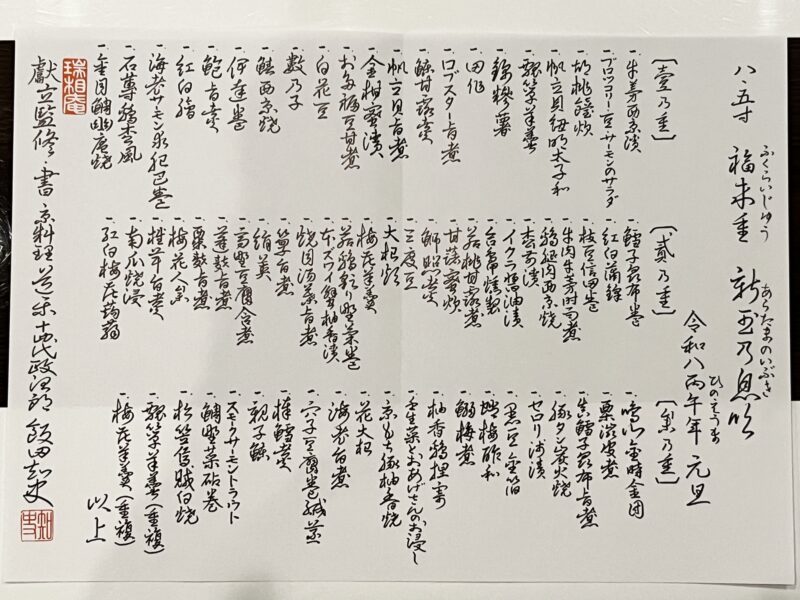 八・五寸 福来重 新玉乃息吹
ふくらいじゅう あらたまのいぶき
令和八丙午年 元旦
ひのえうま
[壹乃重]
一、牛蒡西京漬
一、ブロッコリー豆サーモンのサラダ
一、胡桃
一、帆立貝紐明太子和
一、瓢箪羊羹
一、田作
一、ロブスター旨煮
一、甘露煮
一、帆立貝旨煮
一、金柑蜜漬
一、お多福豆甘煮
一、白花豆
一、数乃子
一、西京焼
一、伊達巻
一、鮑旨煮
一、紅白膾
一、海老サーモン巻
一、石蓴鶏松風
一、金目鯛幽庵焼
[貳乃重]
一、鱈子昆布巻
一、紅白蒲鉾
一、枝豆信田巻
一、牛肉牛蒡時雨煮
一、西京焼
一、杏蜜漬
一、イクラ醤油漬
一、合鴨燻製
一、若桃甘露煮
一、甘藷蜜煮
一、鰤照煮
一、三度豆
一、大根
一、梅花羊羹
一、若鶏彩り野菜巻
一、本ズワイ蟹柚香漬
一、焼目湯葉旨煮
一、筍旨煮
一、絹莢
一、高野豆腐含煮
一、蓬麩旨煮
一、粟麩旨煮
一、梅花人参
一、椎茸旨煮
一、南瓜焼浸
一、紅白梅花蒟蒻
[参乃重]
一、鳴門金時金団
一、栗渋皮煮
一、真鱈子昆布旨煮
一、豚タン炭火焼
一、セロリ浅漬
一、黒豆金箔
一、蛸梅酢和
一、鰯梅煮
一、柚香鶏捏寄
一、壬生菜とおあげさんのお浸し
一、京もち豚柚香焼
一、花大根
一、海老旨煮
一、穴子豆腐巻繊蒸
一、棒鱈煮
一、親子
一、スモークサーモントラウト
一、鯛野菜砧巻
一、松笠烏賊白焼
一、瓢箪羊羹(重複)
一、梅花羊羹(重複)
以上
献立監修・書 京料理 道楽 十四代 政治郎 飯田知史
瑞相庵